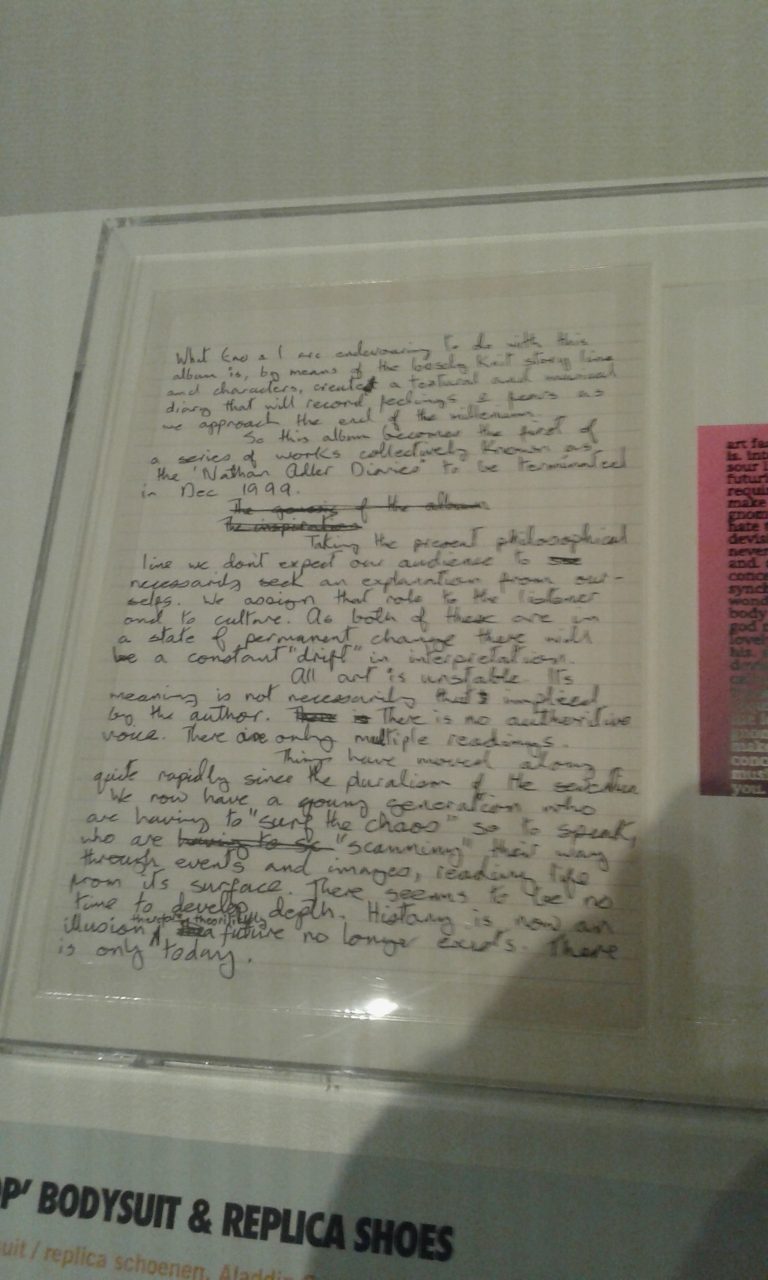 What Eno & I are endevouring to do with this
album is, by means of the loosely knit story line
and characters, create a textural and musical
diary that will record feelings & fears as
we approach the end of the millenium.
So this album becomes the first of
a series of works collectively known as
the 'Nathan Adler Diaries' to be terminated
in Dec 1999.
The genesis of the album
The inspiration
Taking the present philosophical
line we dont expect our audience to
necessarily seek an explanation from our-
selfs. We assign that role to the listener
and to culture. As both of these are in
a state of permanent change there will
be a constant "drift" in interpretation.
All art is unstable. Its
meaning is not necessarily that implied
by the author. There is There is no authoritive
voice. There are only multiple readings.
Things have moved along
quite rapidly since the pluralism of the seventies
We now have a young generation who
are having to "surf the chaos" so to speak,
who are having to sc "scanning" their way
through events and images, reading life
from its surface. There seems to be no
time to develop depth. History is now an
therefore theoretically
illusion a future no longer exists. There
is only today.
art
is.
sour
futuri
requir
make
gnom
hate
devis
never
and.
conce
synch
wond
body
god
lovel
his.
you.
OP' BODYSUIT & REPLICA SHOES
suit / replica schoenen, Aladdin